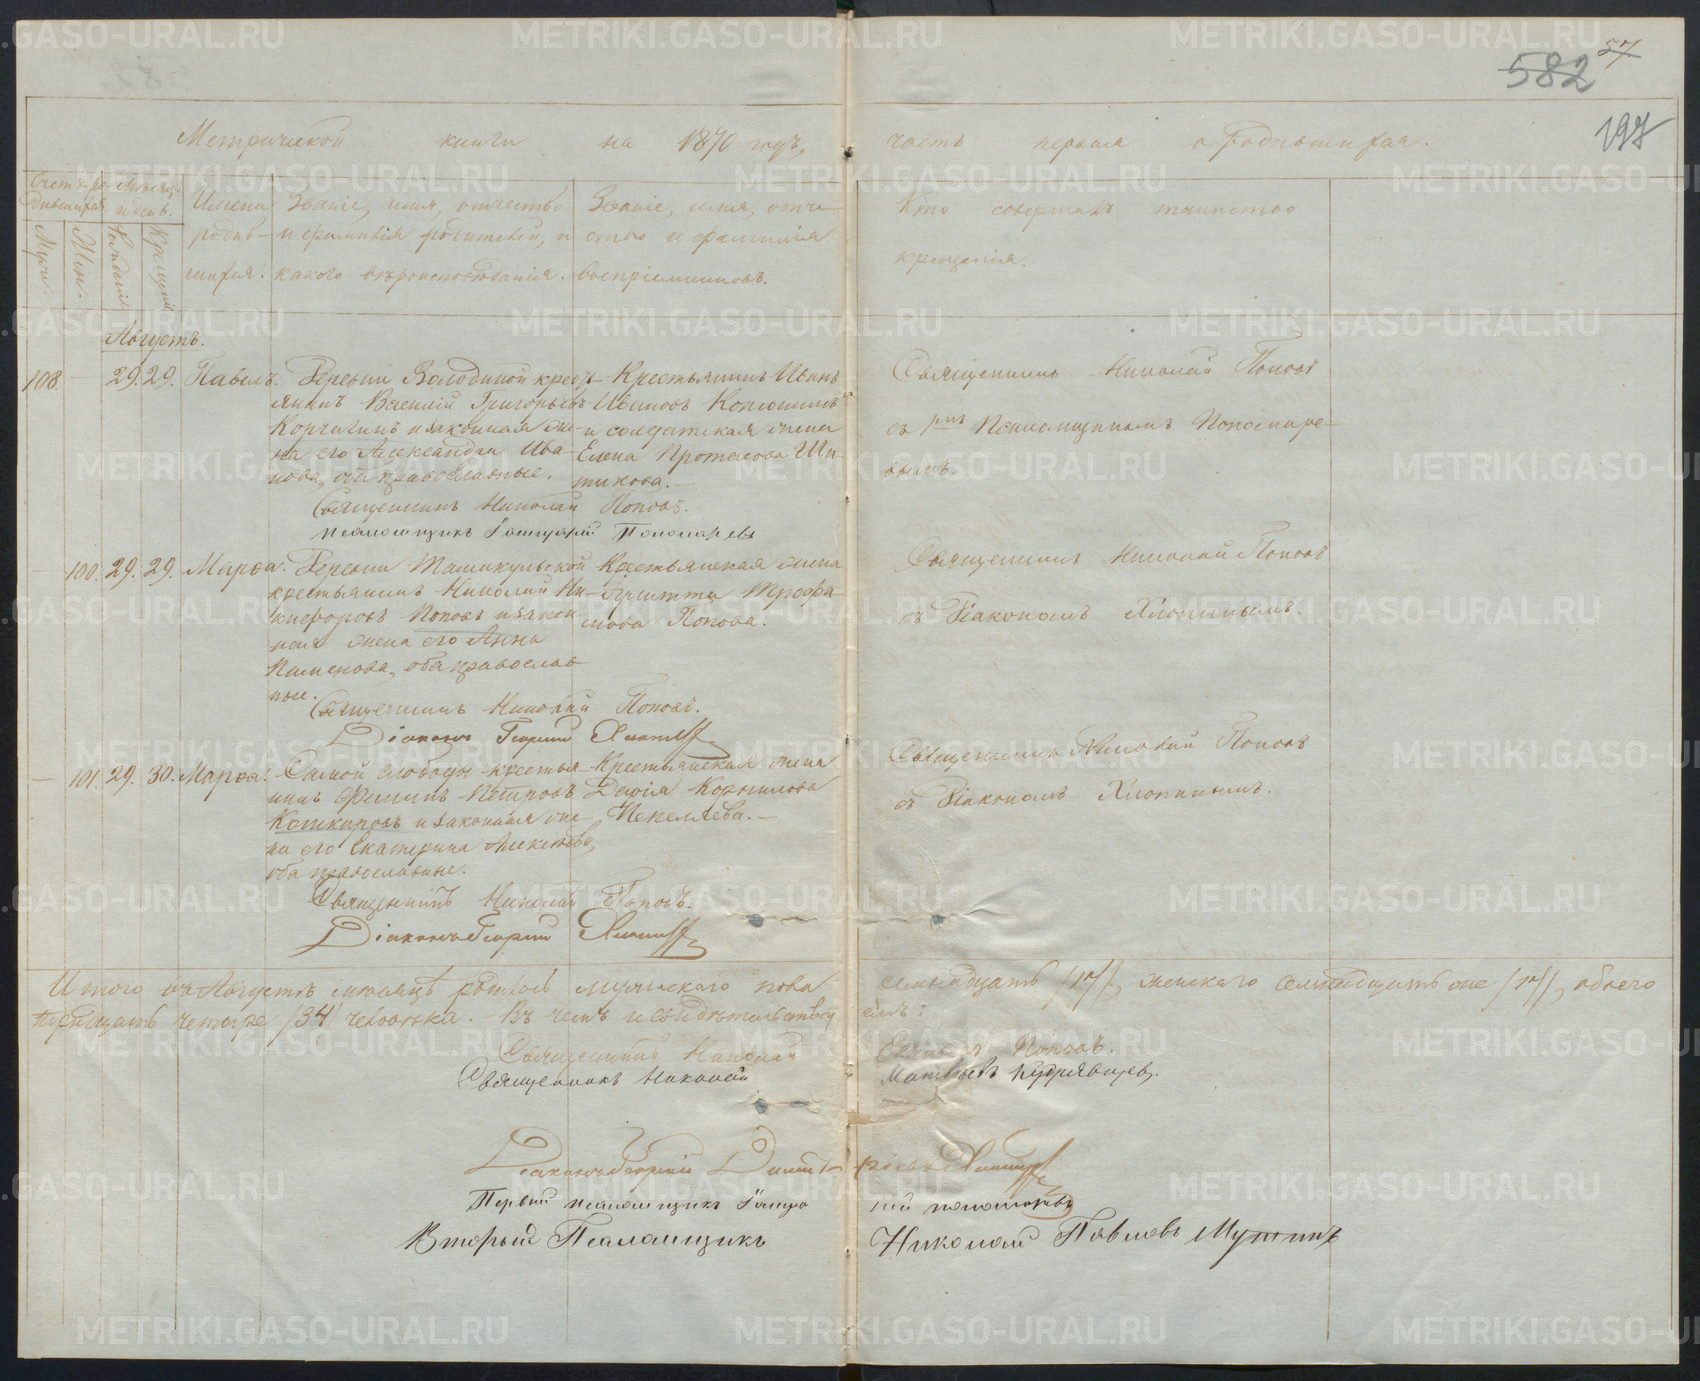 582 57
197
Метрической книги на 1870 годъ, часть первая о родившихся.
Счетъ ро-
дившихся.
Муж.
Жен.
Мѣсяцъ
и день.
Рожденія
Крещенія
Имена
родив-
шихся.
Званіе, имя, отчество
и фамилія родителей, и
какого вѣроисповѣданія.
Званіе, имя, отче-
ство и фамилія
воспріемниковъ.
Кто совершалъ таинство
крещенія.
Августъ.
108 — 29. 29. Павелъ.
Деревни Володиной крест-
янинъ Василій Григорьевъ
Корчагинъ и законная же-
на его Александра Ива-
нова, оба православные.
Крестьянинъ Иванъ
Ивановъ
и солдатская жена
Елена Протасова Ши-
пикова.—
Священникъ Николай Поповъ
съ Псаломщикомъ Пономаре-
вымъ.
Священникъ Николай Поповъ.
Псаломщикъ Пономаревъ
— 100. 29. 29. Марѳа.
Деревни Тамакульской
крестьянинъ Николай Ни-
кифоровъ Поповъ и закон-
ная жена его Анна
Пименова, оба православ-
ные.
Крестьянская жена
Трофи-
мова Попова.
Священникъ Николай Поповъ
съ Діакономъ Хлопинымъ.
Священникъ Николай Поповъ.
Діаконъ Георгій
— 101. 29. 30. Марѳа.
Самой слободы крестья-
нинъ Филипъ Петровъ
Кошкаровъ и законная же-
на его Екатерина Алексѣева,
оба православные.
Крестьянская жена
Дарія Корнилова
Пепеляева.—
Священникъ Николай Поповъ
съ Діакономъ Хлопинымъ.
Священникъ Николай Поповъ.
Діаконъ Георгій
Итого въ Августѣ мѣсяцѣ родилось мужескаго пола семнадцать /17/, женскаго семнадцать же /17/, обоего
тридцать четыре /34 человѣка.— Въ чемъ и свидѣтельствуемъ:
Священникъ Николай Поповъ.
Священникъ Николай Матвѣевъ Кудрявцевъ.
Діаконъ Георгій
Первый псаломщикъ Пономаревъ
Второй Псаломщикъ Николай Павловъ Мутинъ
METRIKI.GASO-URAL.RU